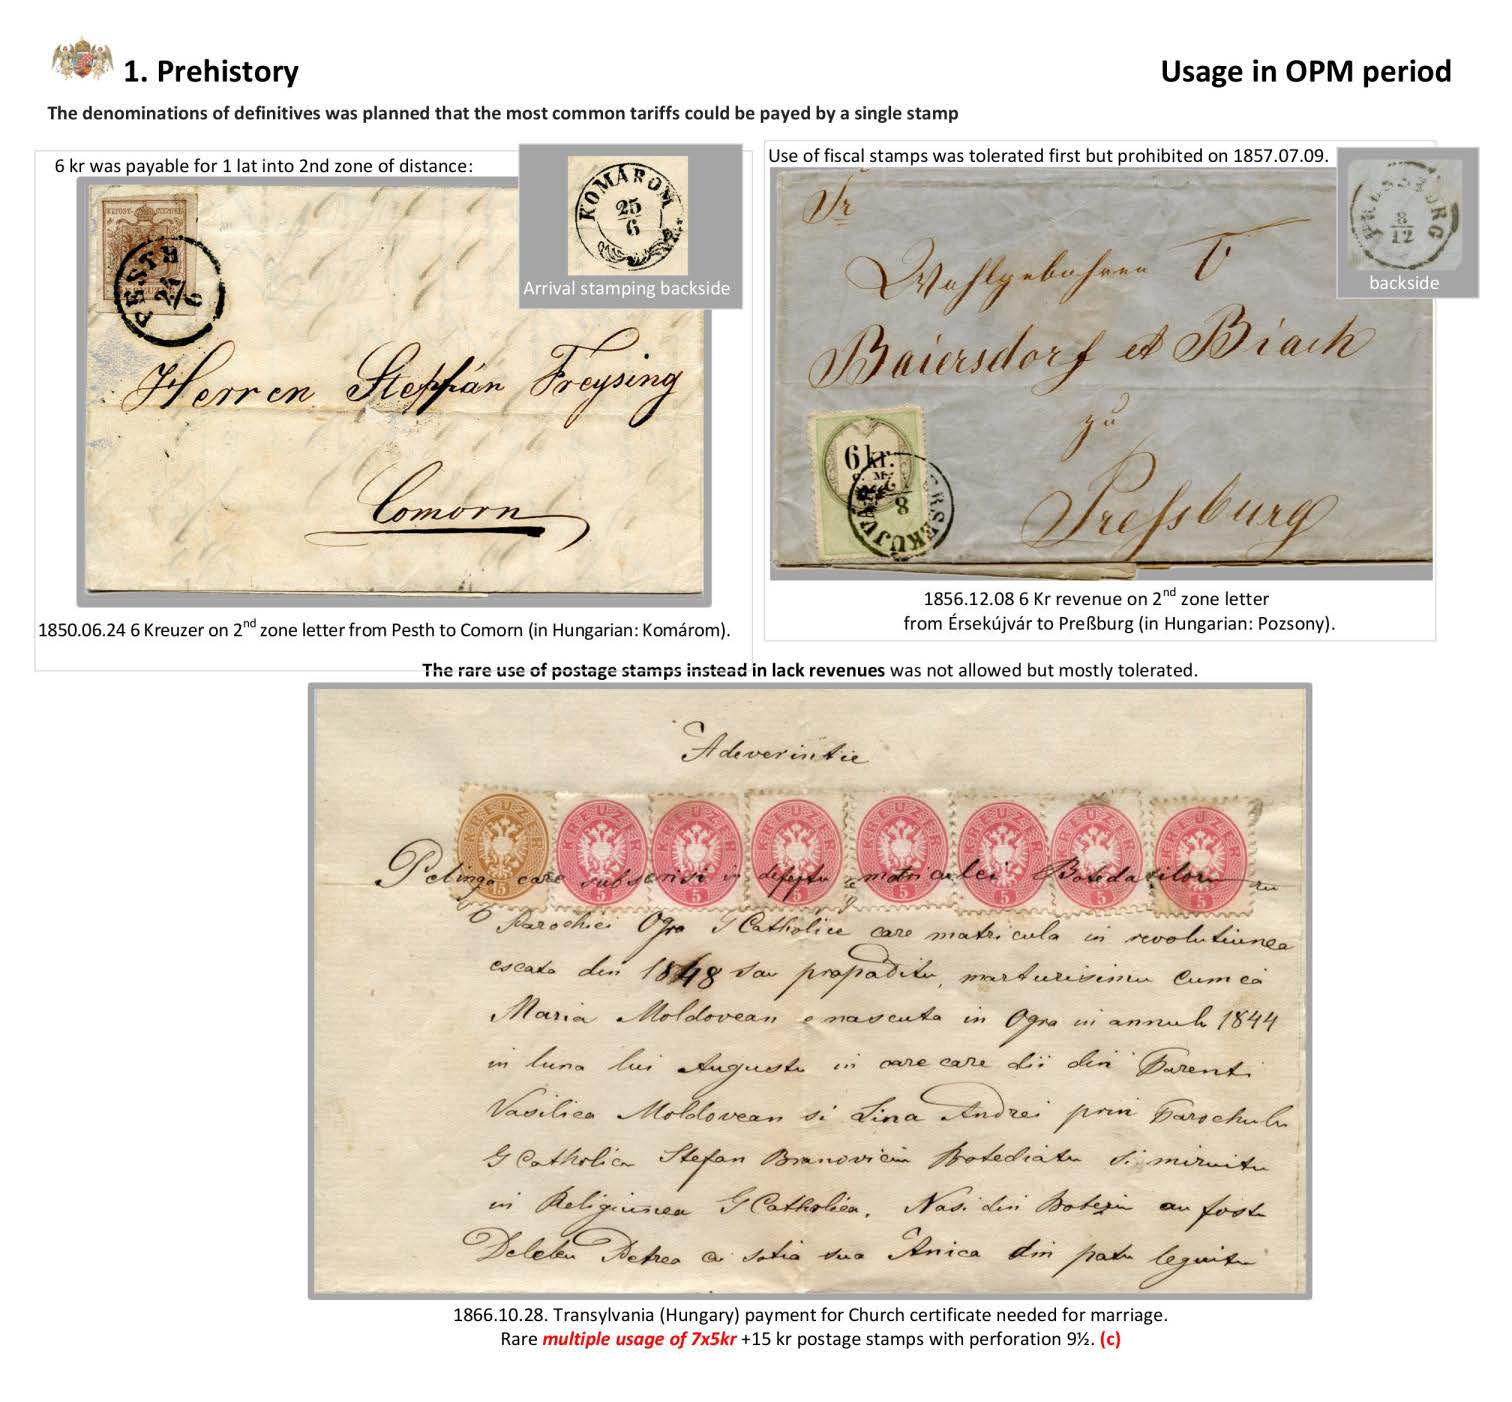 1. Prehistory
Usage in OPM period
The denominations of definitives was planned that the most common tariffs could be payed by a single stamp
6 kr was payable for 1 lat into 2nd zone of distance:
PESTH
24
6
KOMÁROM
25
6
Arrival stamping backside
Herren Steffán Freysing
Comorn
1850.06.24 6 Kreuzer on 2nd zone letter from Pesth to Comorn (in Hungarian: Komárom).
Use of fiscal stamps was tolerated first but prohibited on 1857.07.09.
Fr
Wohlgebohren
Baiersdorf et Biach
zu
Preßburg
6 kr.
C.M.
ÉRSEKUJVÁR
8
PRESSBURG
8
12
backside
1856.12.08 6 Kr revenue on 2nd zone letter
from Érsekújvár to Preßburg (in Hungarian: Pozsony).
The rare use of postage stamps instead in lack revenues was not allowed but mostly tolerated.
Adeverintie
KREUZER 15
KREUZER 5
KREUZER 5
KREUZER 5
KREUZER 5
KREUZER 5
KREUZER 5
KREUZER 5
care subscrisi in defeptu matriculei Botedatilor
Parochiei Ogra G Catholice care matricula in revolutiunea
escata din 1848 sau prapaditu, marturisimu cumca
Maria Moldovean e nascuta in Ogra in annulu 1844
in luna lui Augustu in care care dii din Parenti
Vasilica Moldovean si Lina Andrei prin Parochulu
G Catholicu Stefan Branoviciu Botediatu si miruitu
in Religiunea G Catholica. Nasi din Botezu au fostu
Petrea cu sotia sua Anica din patu leguitu
1866.10.28. Transylvania (Hungary) payment for Church certificate needed for marriage.
Rare multiple usage of 7x5kr +15 kr postage stamps with perforation 9½. (c)